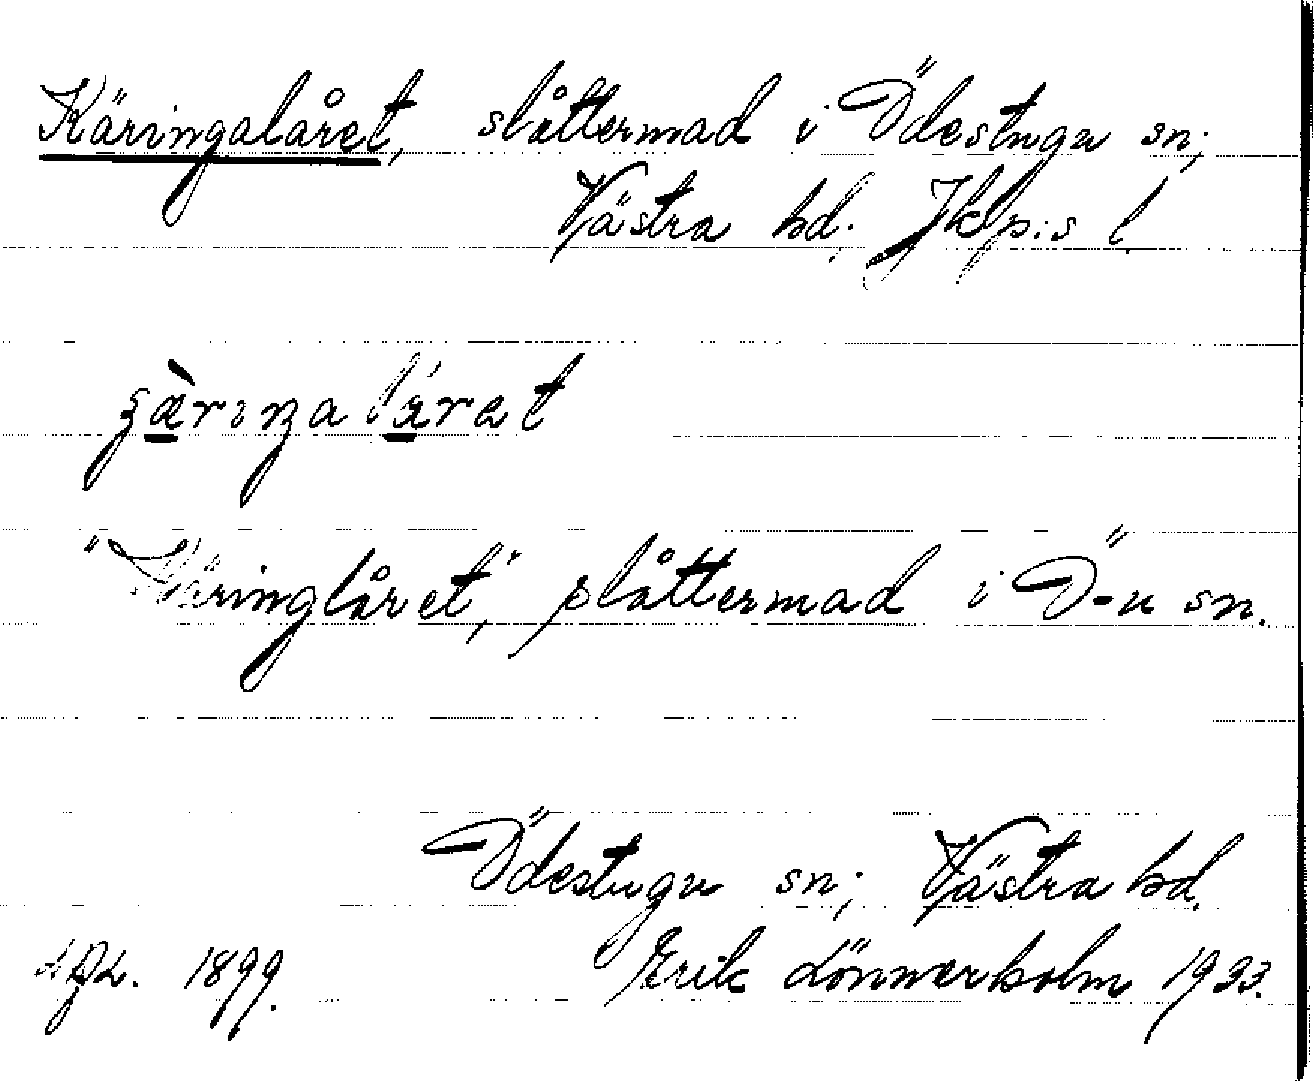 Käringalåret, slåttermad i Ödestugu sn;
Västra hd; Jkp:s l.
"Käringlåret", slåttermad i Ö-u sn.
Ödestugu sn; Västra hd.
1899. Erik Lönnerholm 1933.